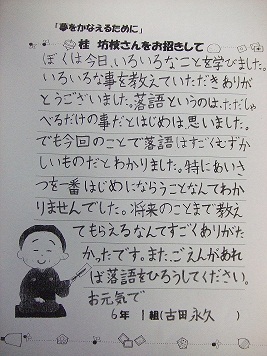 「夢をかなえるために」
桂 坊枝さんをお招きして
ぼくは今日、いろいろなことを学びました。
いろいろな事を教えていただきありが
とうございました。落語というのは、ただしゃ
べるだけの事だとはじめは思いました。
でも今回のことで落語はすごくむずか
しいものだとわかりました。特にあいさ
つを一番はじめにならうことなんてわか
りませんでした。将来のことまで教え
てもらえるなんてすごくありがた
かったです。またごえんがあれ
ば落語をひろうしてください。
お元気で
6年 1組(古田 永久)